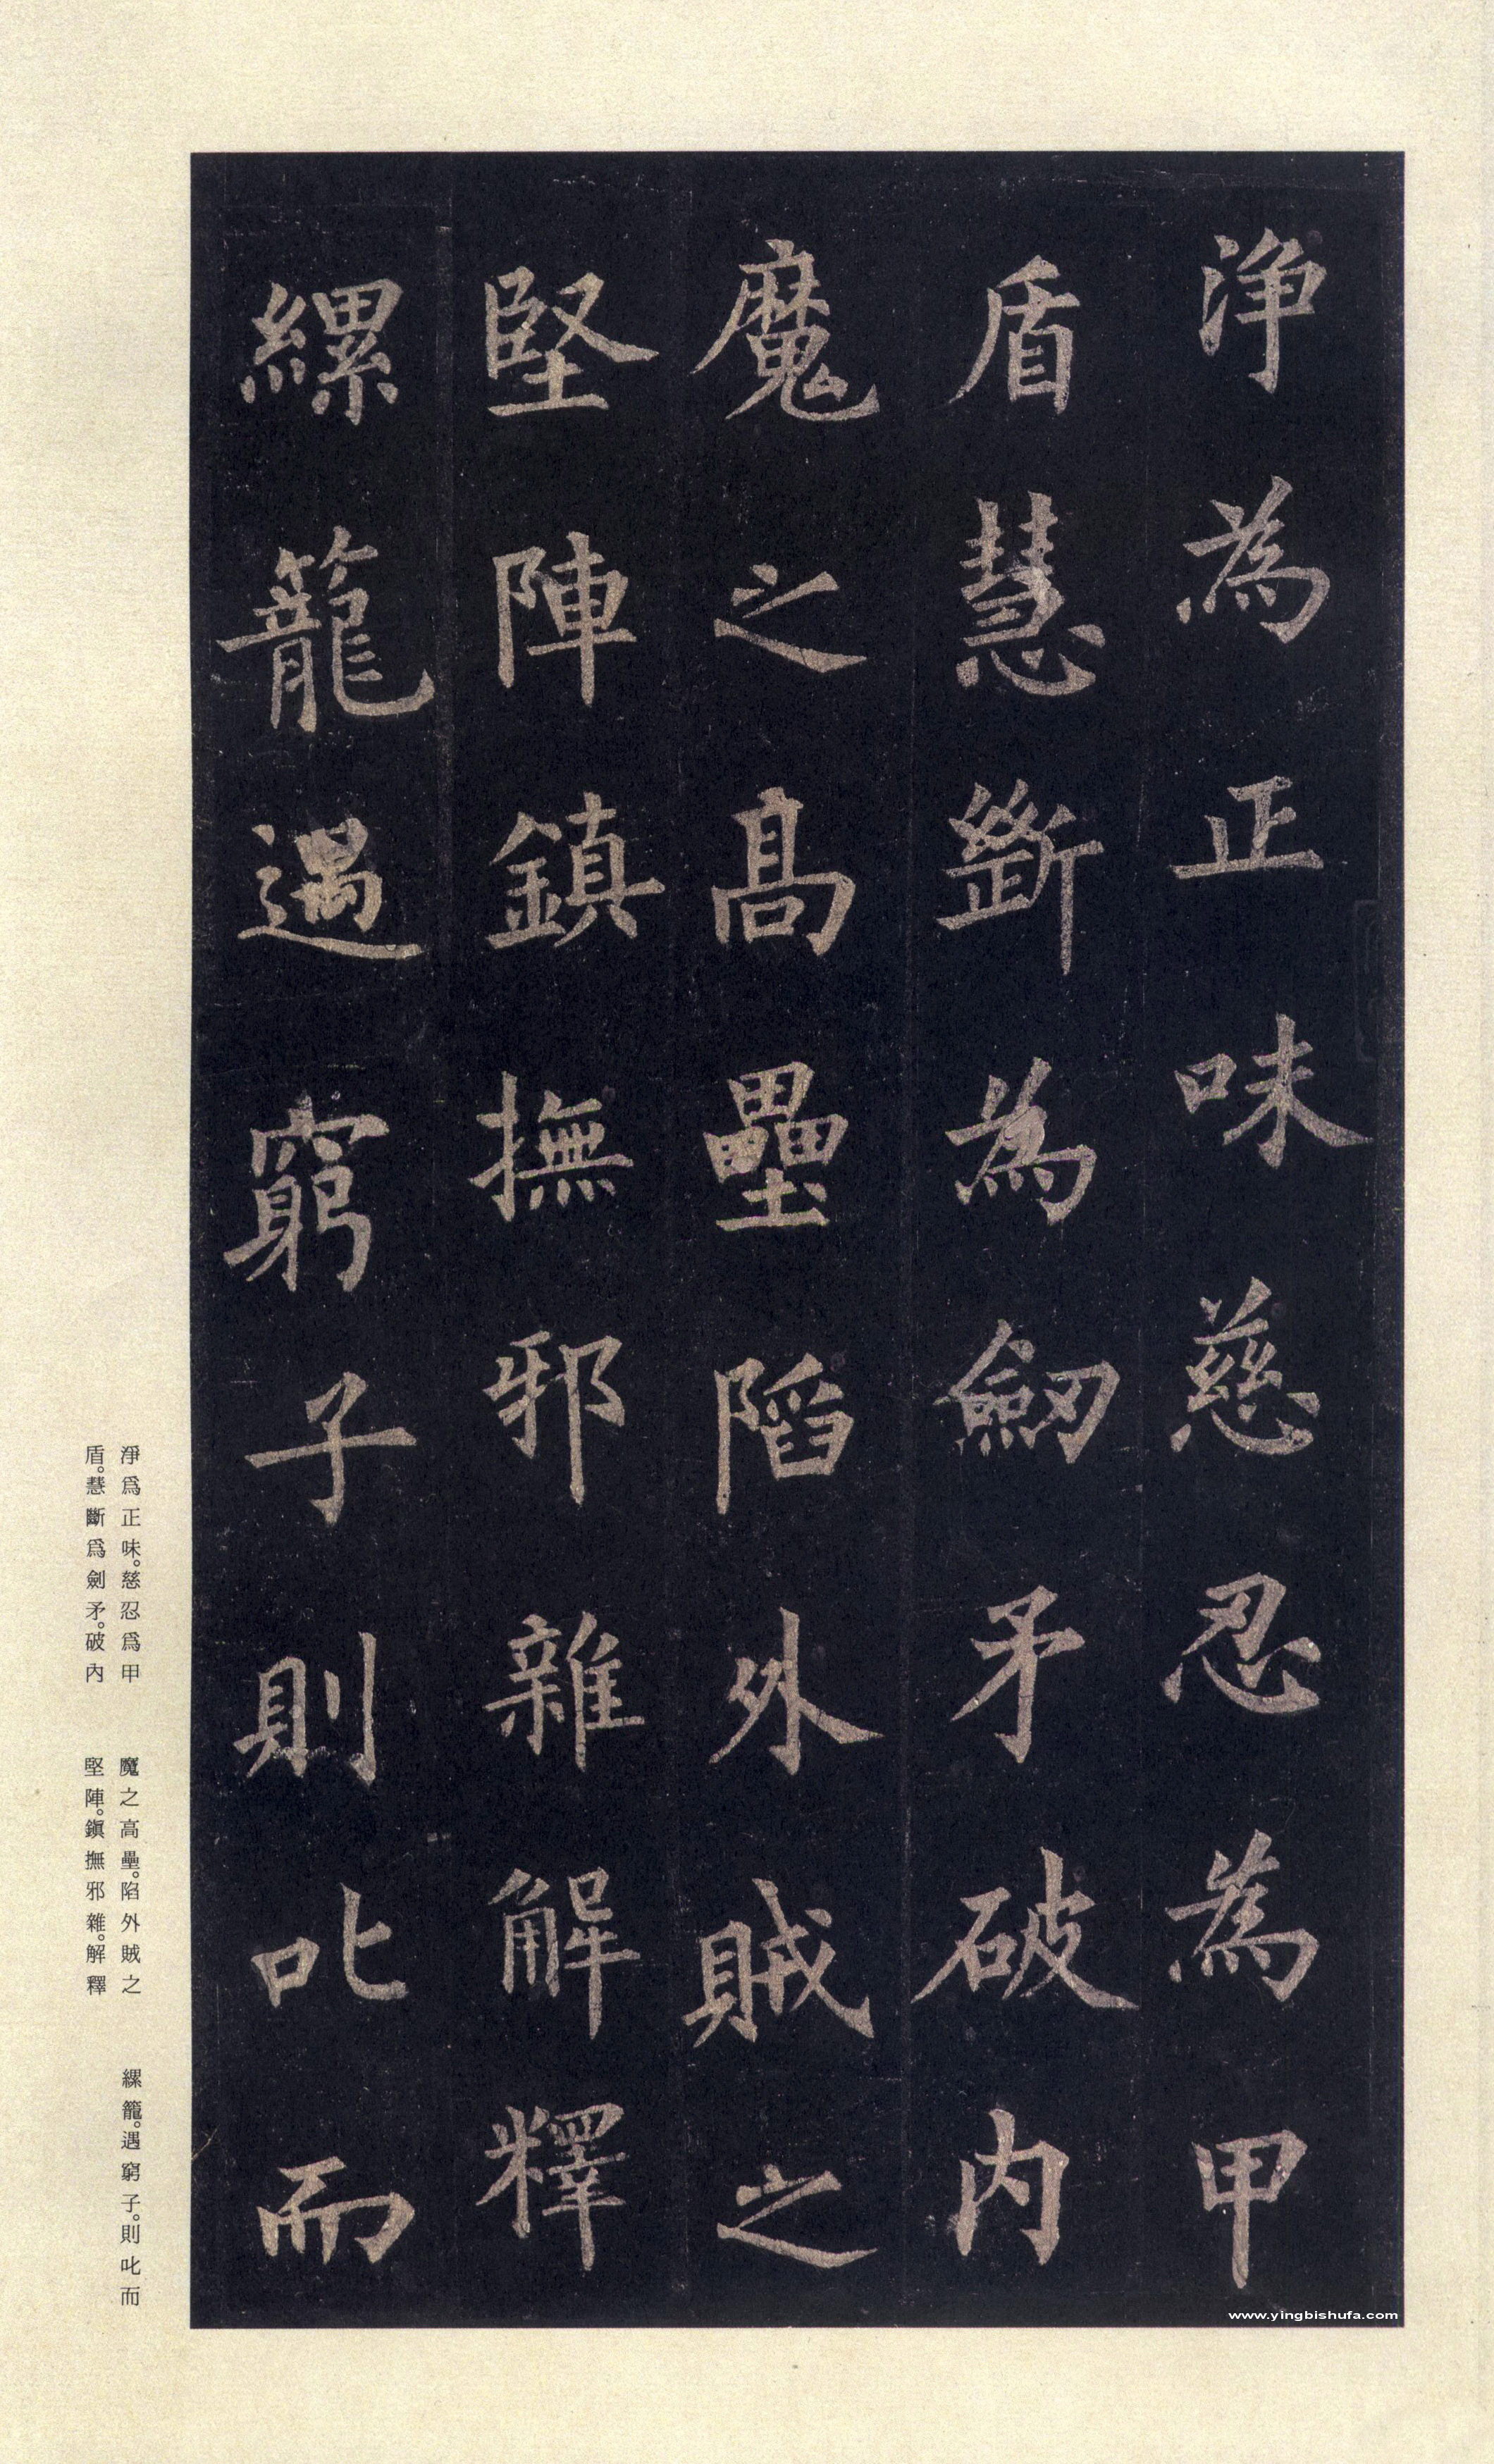 浄為正味慈忍為甲
盾慧斷為劒矛破内
魔之髙壘陷外賊之
堅陣鎮撫邪雜解釋
縲籠遇窮子則叱而
淨爲正味。慈忍爲甲
盾。慧斷爲劍矛。破內
魔之高壘。陷外賊之
堅陣。鎭撫邪雜。解釋
縲籠。遇窮子。則叱而
www.yingbishufa.com